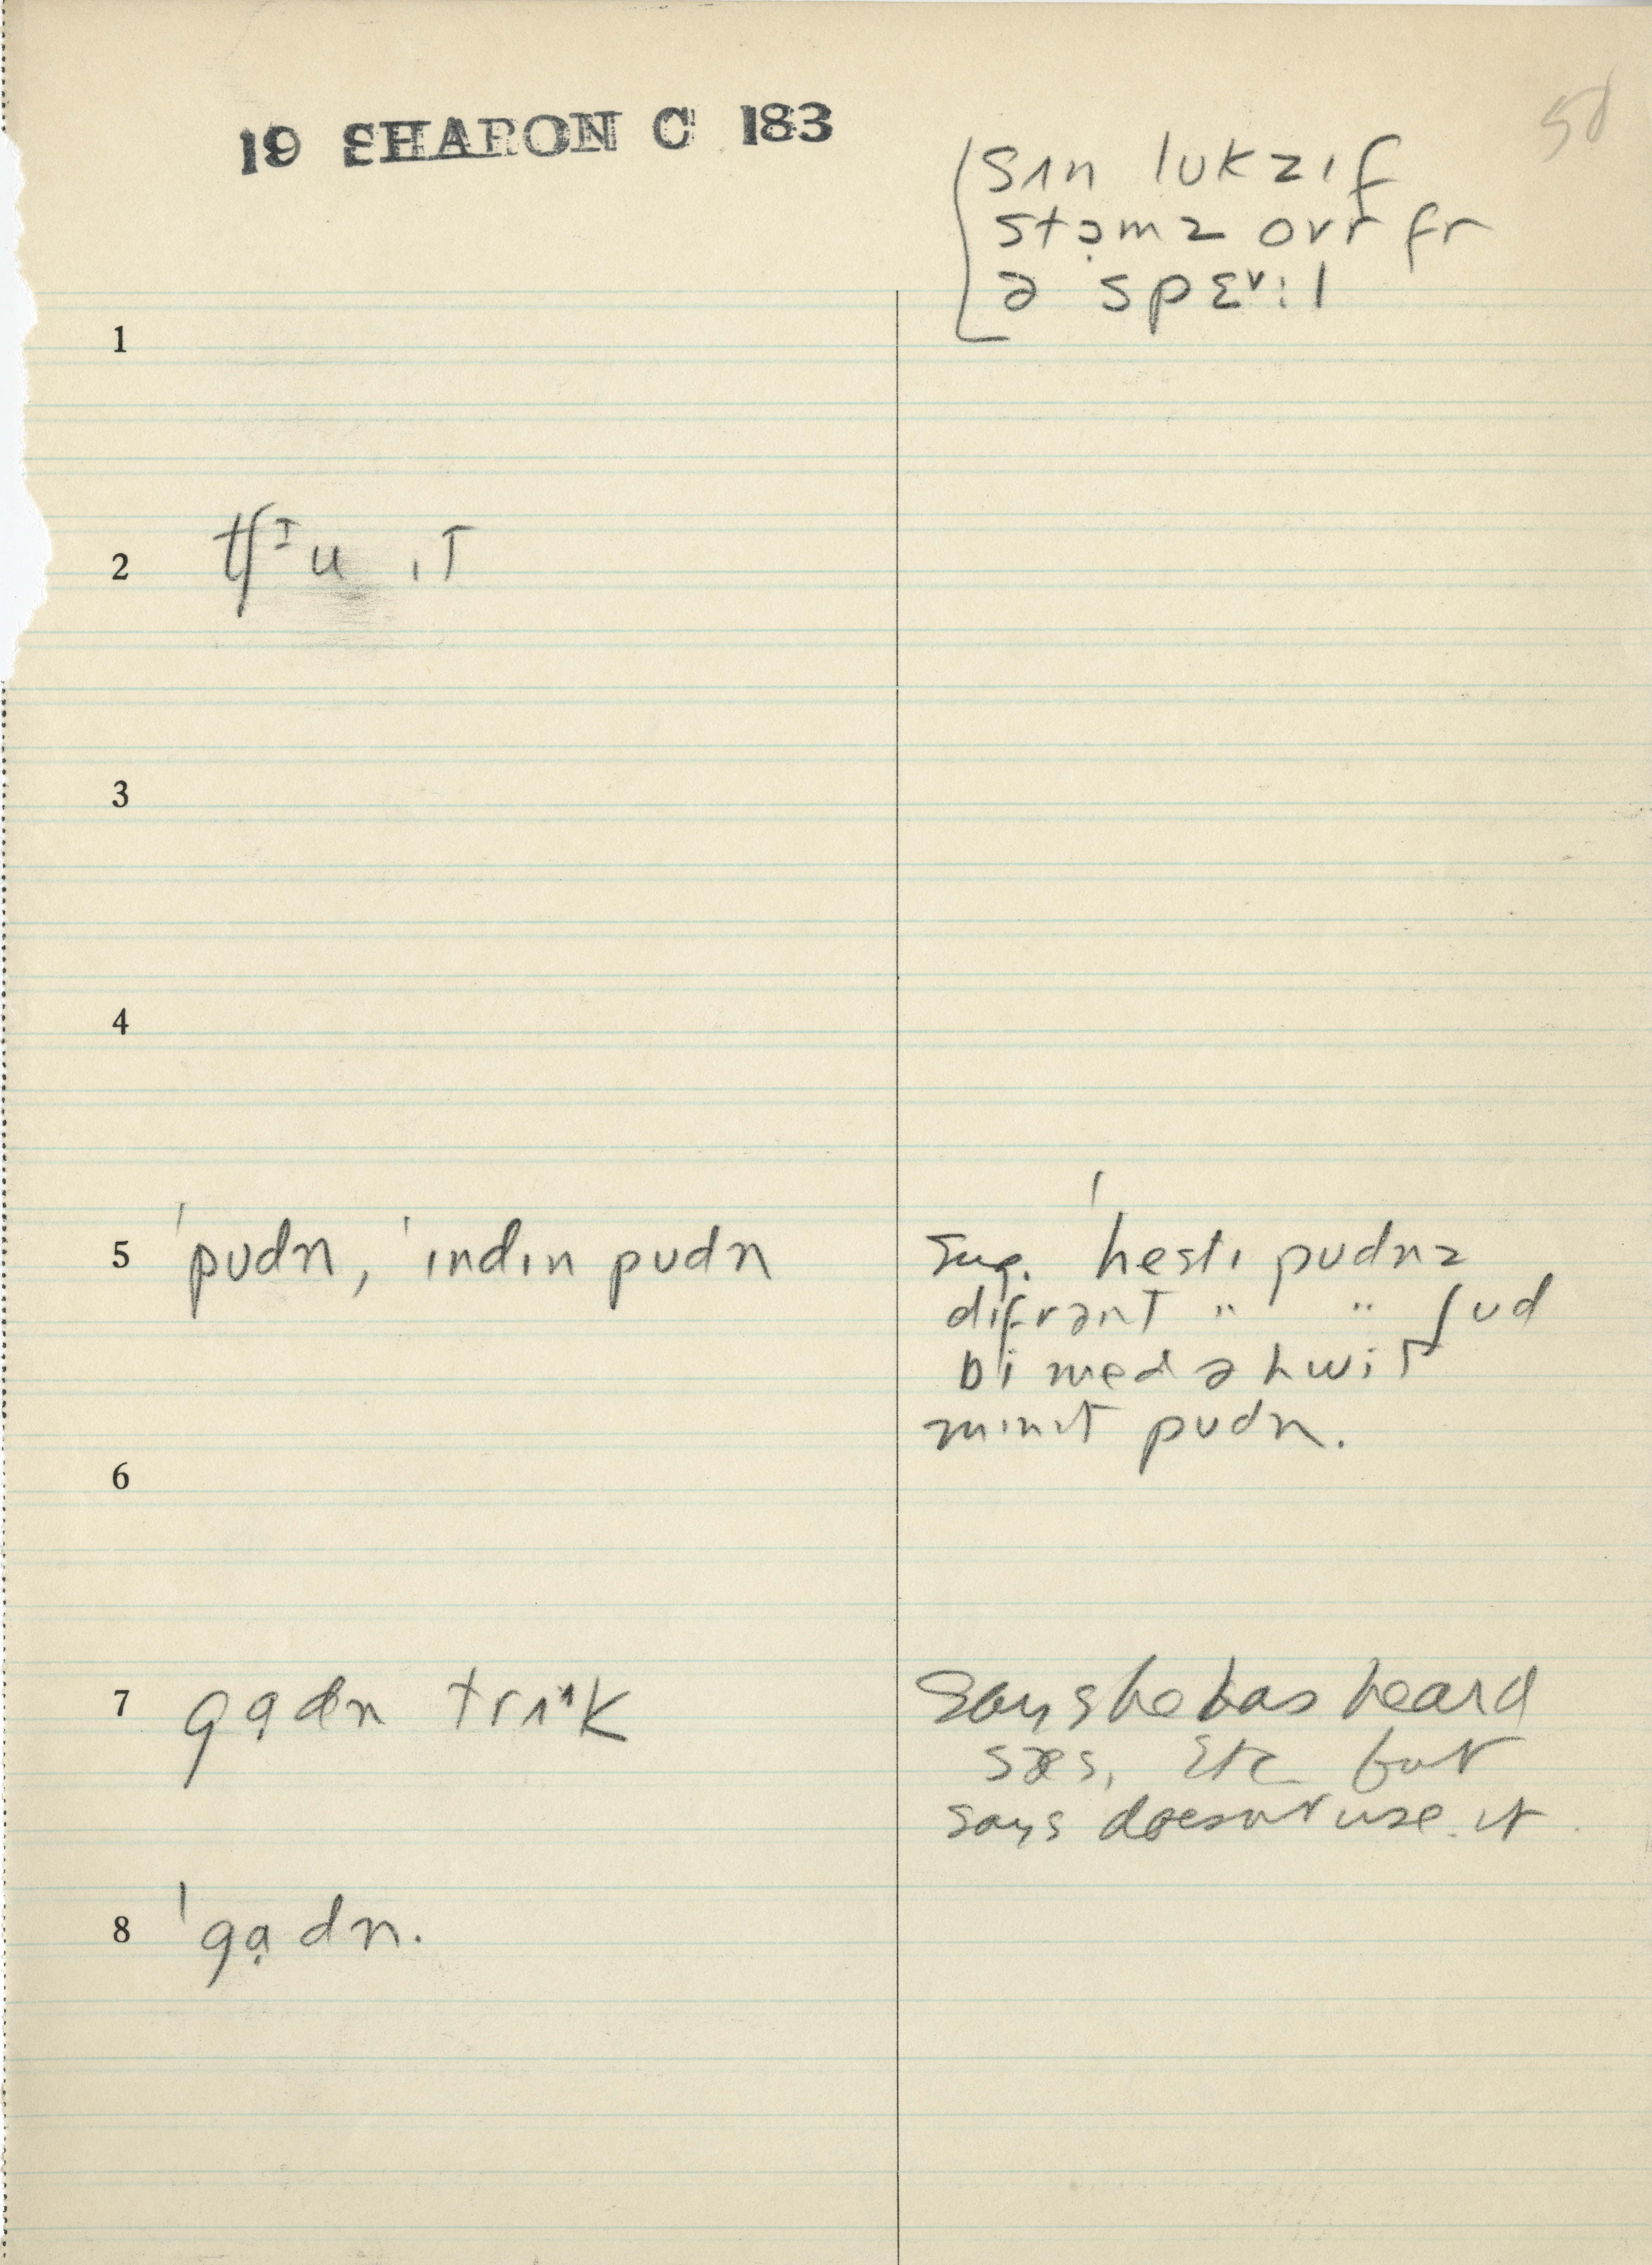 19 SHARON C 183
50
sʌn lʊkz ɪf
stɔ̣mz ovr fr
ə spɛᵛ:l
1
2 tʃᶦu ɪT
3
4
5 ˈpʊdn, ˈɪndɪn pʊdn
Sug. ˈhestɪ pʊdnz
dɪfrənT " " ʃʊd
bi med ə hwiT
mɪnɪt pʊdn.
6
7 gạdn trʌᶺk
Says he has heard
sæs, etc but
says doesn't use it
8 ˈgạdn.